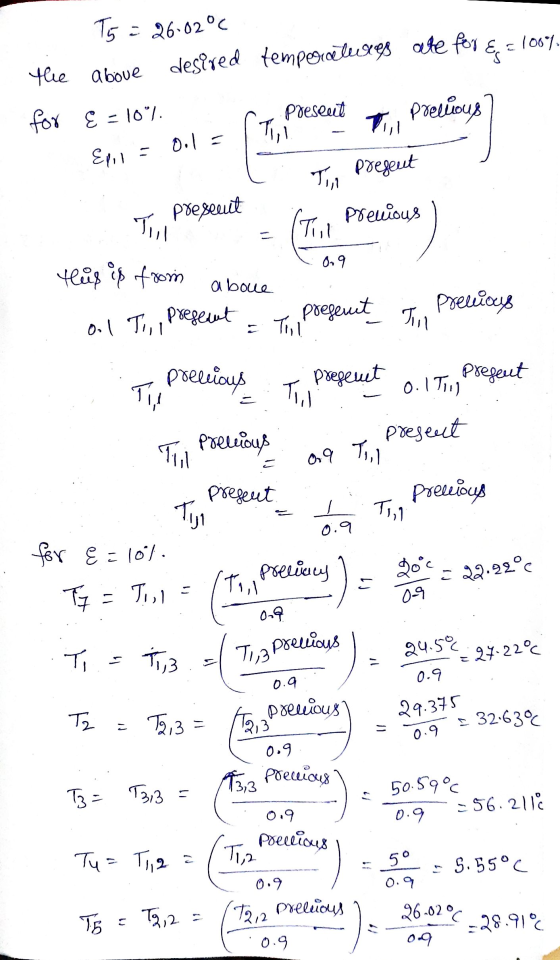 T5 = 26.02°C
the above desired temperatures are for εs = 100%.
for ε = 10%.
ε1,1 = 0.1 = [(T1,1 present − T1,1 previous) / T1,1 present]
T1,1 present = (T1,1 previous / 0.9)
this is from above
0.1 T1,1 present = T1,1 present − T1,1 previous
T1,1 previous = T1,1 present − 0.1 T1,1 present
T1,1 previous = 0.9 T1,1 present
T1,1 present = 1/0.9 T1,1 previous
for ε = 10%.
T7 = T1,1 = (T1,1 previous / 0.9) = 20°C / 0.9 = 22.22°C
T1 = T1,3 = (T1,3 previous / 0.9) = 24.5°C / 0.9 = 27.22°C
T2 = T2,3 = (T2,3 previous / 0.9) = 29.375 / 0.9 = 32.63°C
T3 = T3,3 = (T3,3 previous / 0.9) = 50.59°C / 0.9 = 56.211°C
T4 = T1,2 = (T1,2 previous / 0.9) = 5° / 0.9 = 5.55°C
T5 = T2,2 = (T2,2 previous / 0.9) = 26.02°C / 0.9 = 28.91°C